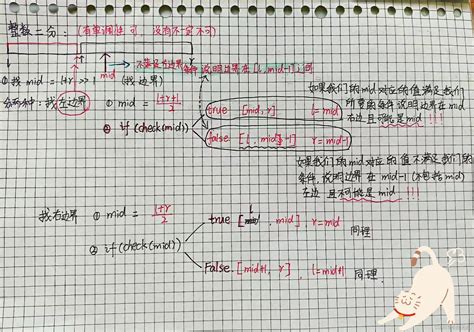 整数二分：(有单调性可 没有不一定不可)
不满足右边界条件 说明边界在[l, mid-1]中
①找 mid = l+r >> 1 (找边界)
mid
分两种：找左边界 ① mid = l+r+1 / 2
② if (check(mid))
true [mid, r] l=mid
false [l, mid-1] r=mid-1
如果我们的mid对应的值满足我们
所要的条件说明边界在mid
右边且可能是mid !!!
如果我们的mid对应的值不满足我们的
条件，说明边界在mid-1 (不包括mid)
左边且不可能是mid !!!
找右边界 ① mid = l+r / 2
② if (check(mid))
true [l, mid], r=mid
同理
False [mid+1, r], l=mid+1 同理.